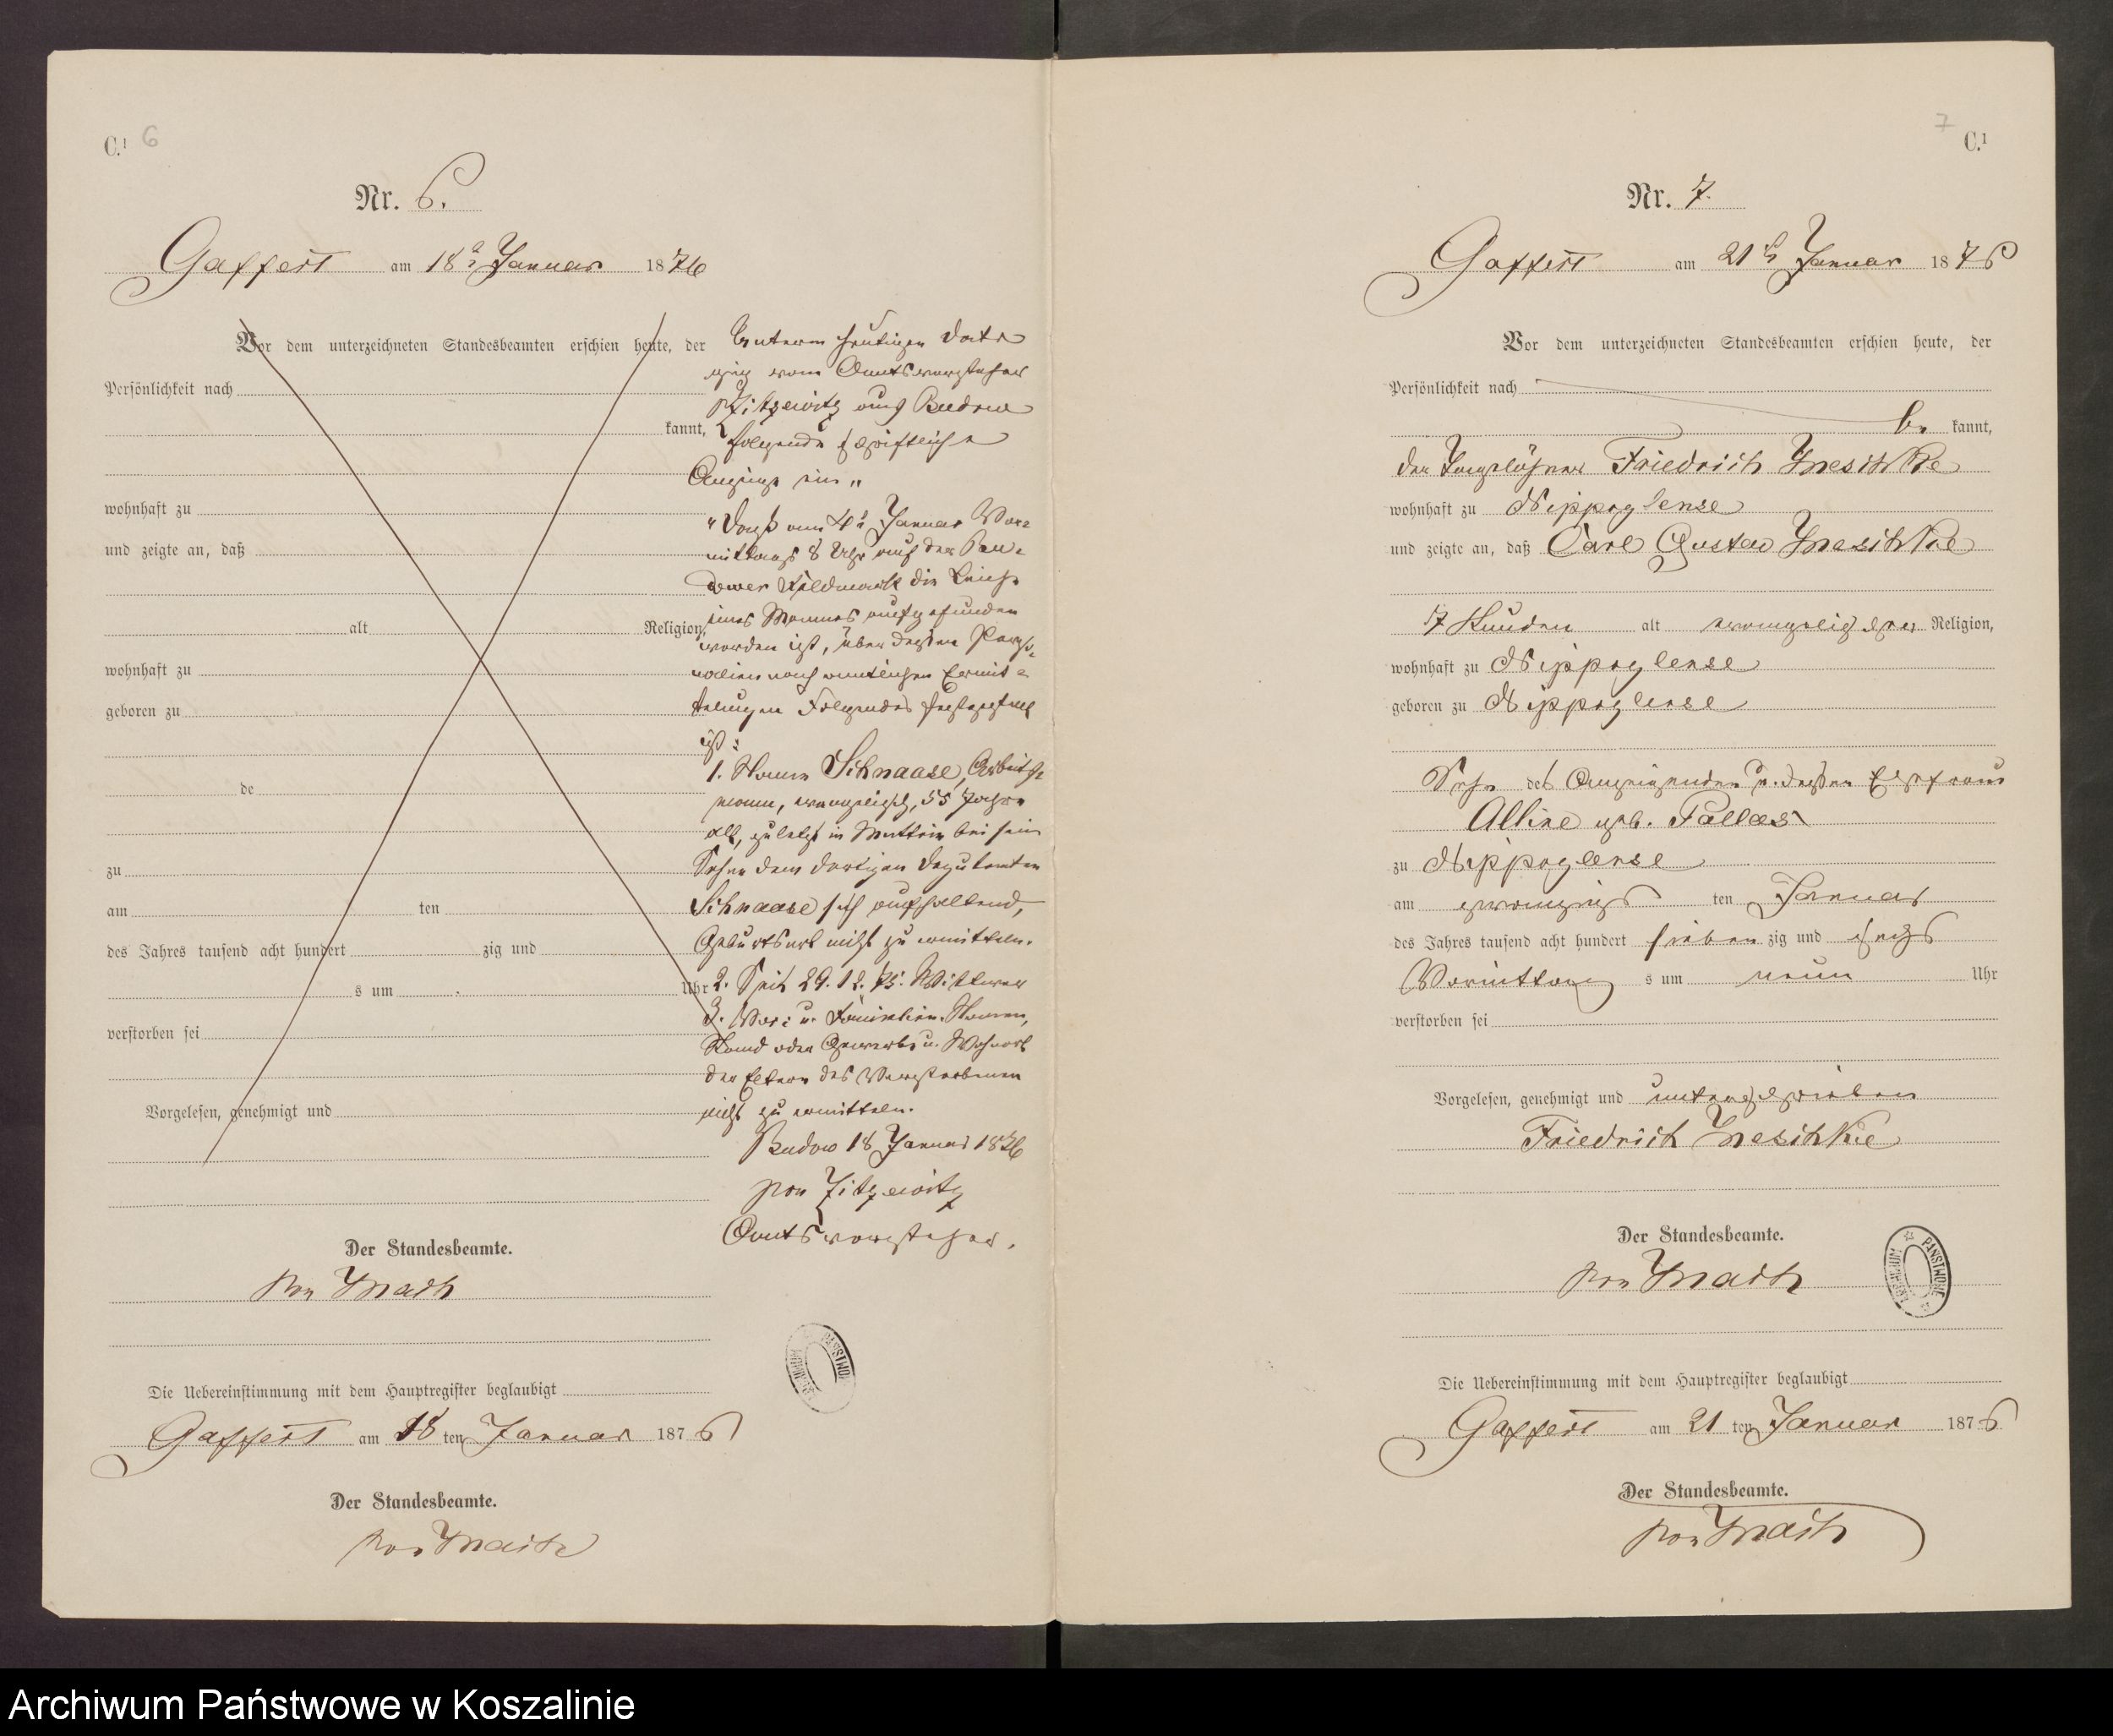 C.¹ 6
Nr. 6.
Gaffert am 18ᵗ Januar 1876
Vor dem unterzeichneten Standesbeamten erschien heute, der
Persönlichkeit nach
kannt,
wohnhaft zu
und zeigte an, daß
alt Religion,
wohnhaft zu
geboren zu
de
zu
am ten
des Jahres tausend acht hundert zig und
s um Uhr
verstorben sei
Vorgelesen, genehmigt und
Unterm heutigen Dato
ging vom Amtsvorsteher
Zitzewitz aus Budow
folgende schriftliche
Anzeige ein „
„Daß am 4ᵗ Januar Vor=
mittags 8 Uhr auf der Bu=
dower Feldmark die Leiche
eines Mannes aufgefunden
worden ist, über dessen Perso=
nalien nach amtlichen Ermit=
telungen Folgendes festgestellt
ist:
1. Namen Schnaase, Arbeits=
mann, evangelisch, 55 Jahre
alt, zuletzt in Muttrin bei sein
Sohne dem dortigen Deputanten
Schnaase sich aufhaltend,
Geburtsort nicht zu ermitteln.
2. Seit 29.12.75. Wittwer
3. Vor= u. Familien-Namen,
Stand oder Gewerbe u. Wohnort
der Eltern des Verstorbenen
nicht zu ermitteln.
Budow 18 Januar 1876
von Zitzewitz
Amtsvorsteher.
Der Standesbeamte.
von Mach
Die Uebereinstimmung mit dem Hauptregister beglaubigt
Gaffert am 18 ten Januar 1876
Der Standesbeamte.
7 C.¹
Nr. 7.
Gaffert am 21ᵗ Januar 1876
Vor dem unterzeichneten Standesbeamten erschien heute, der
Persönlichkeit nach
be kannt,
der Tagelöhner Friedrich
wohnhaft zu Nippoglense
und zeigte an, daß Carl Gustav
17 Stunden alt evangelischer Religion,
wohnhaft zu Nippoglense
geboren zu Nippoglense
Sohn des Anzeigenden u. dessen Ehefrau
Albine geb. Pallas
zu Nippoglense
am zwanzigs ten Januar
des Jahres tausend acht hundert sieben zig und sechs
Vormittag s um neun Uhr
verstorben sei
Vorgelesen, genehmigt und unterschrieben
Friedrich
Der Standesbeamte.
von Mach
ARCHIWUM PAŃSTWOWE
Die Uebereinstimmung mit dem Hauptregister beglaubigt
Gaffert am 21 ten Januar 1876
Der Standesbeamte.
von Mach
Archiwum Państwowe w Koszalinie